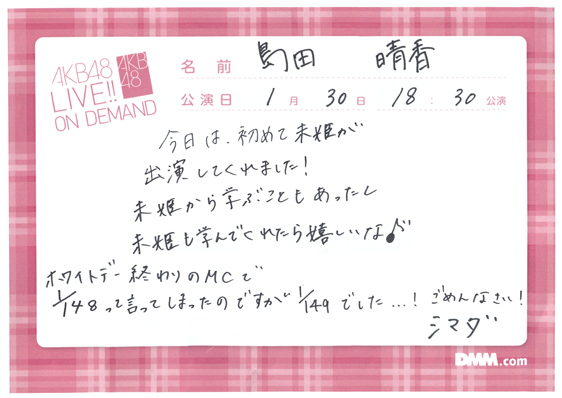 AKB48
LIVE!!
ON DEMAND
AKB
48
名前 島田 晴香
公演日 1月 30日 18:30公演
今日は、初めて未姫が
出演してくれました!
未姫から学ぶこともあったし
未姫も学んでくれたら嬉しいな♪
ホワイトデー終わりのMCで
1/148って言ってしまったのですが 1/149でした...! ごめんなさい!
シマダ
DMM.com